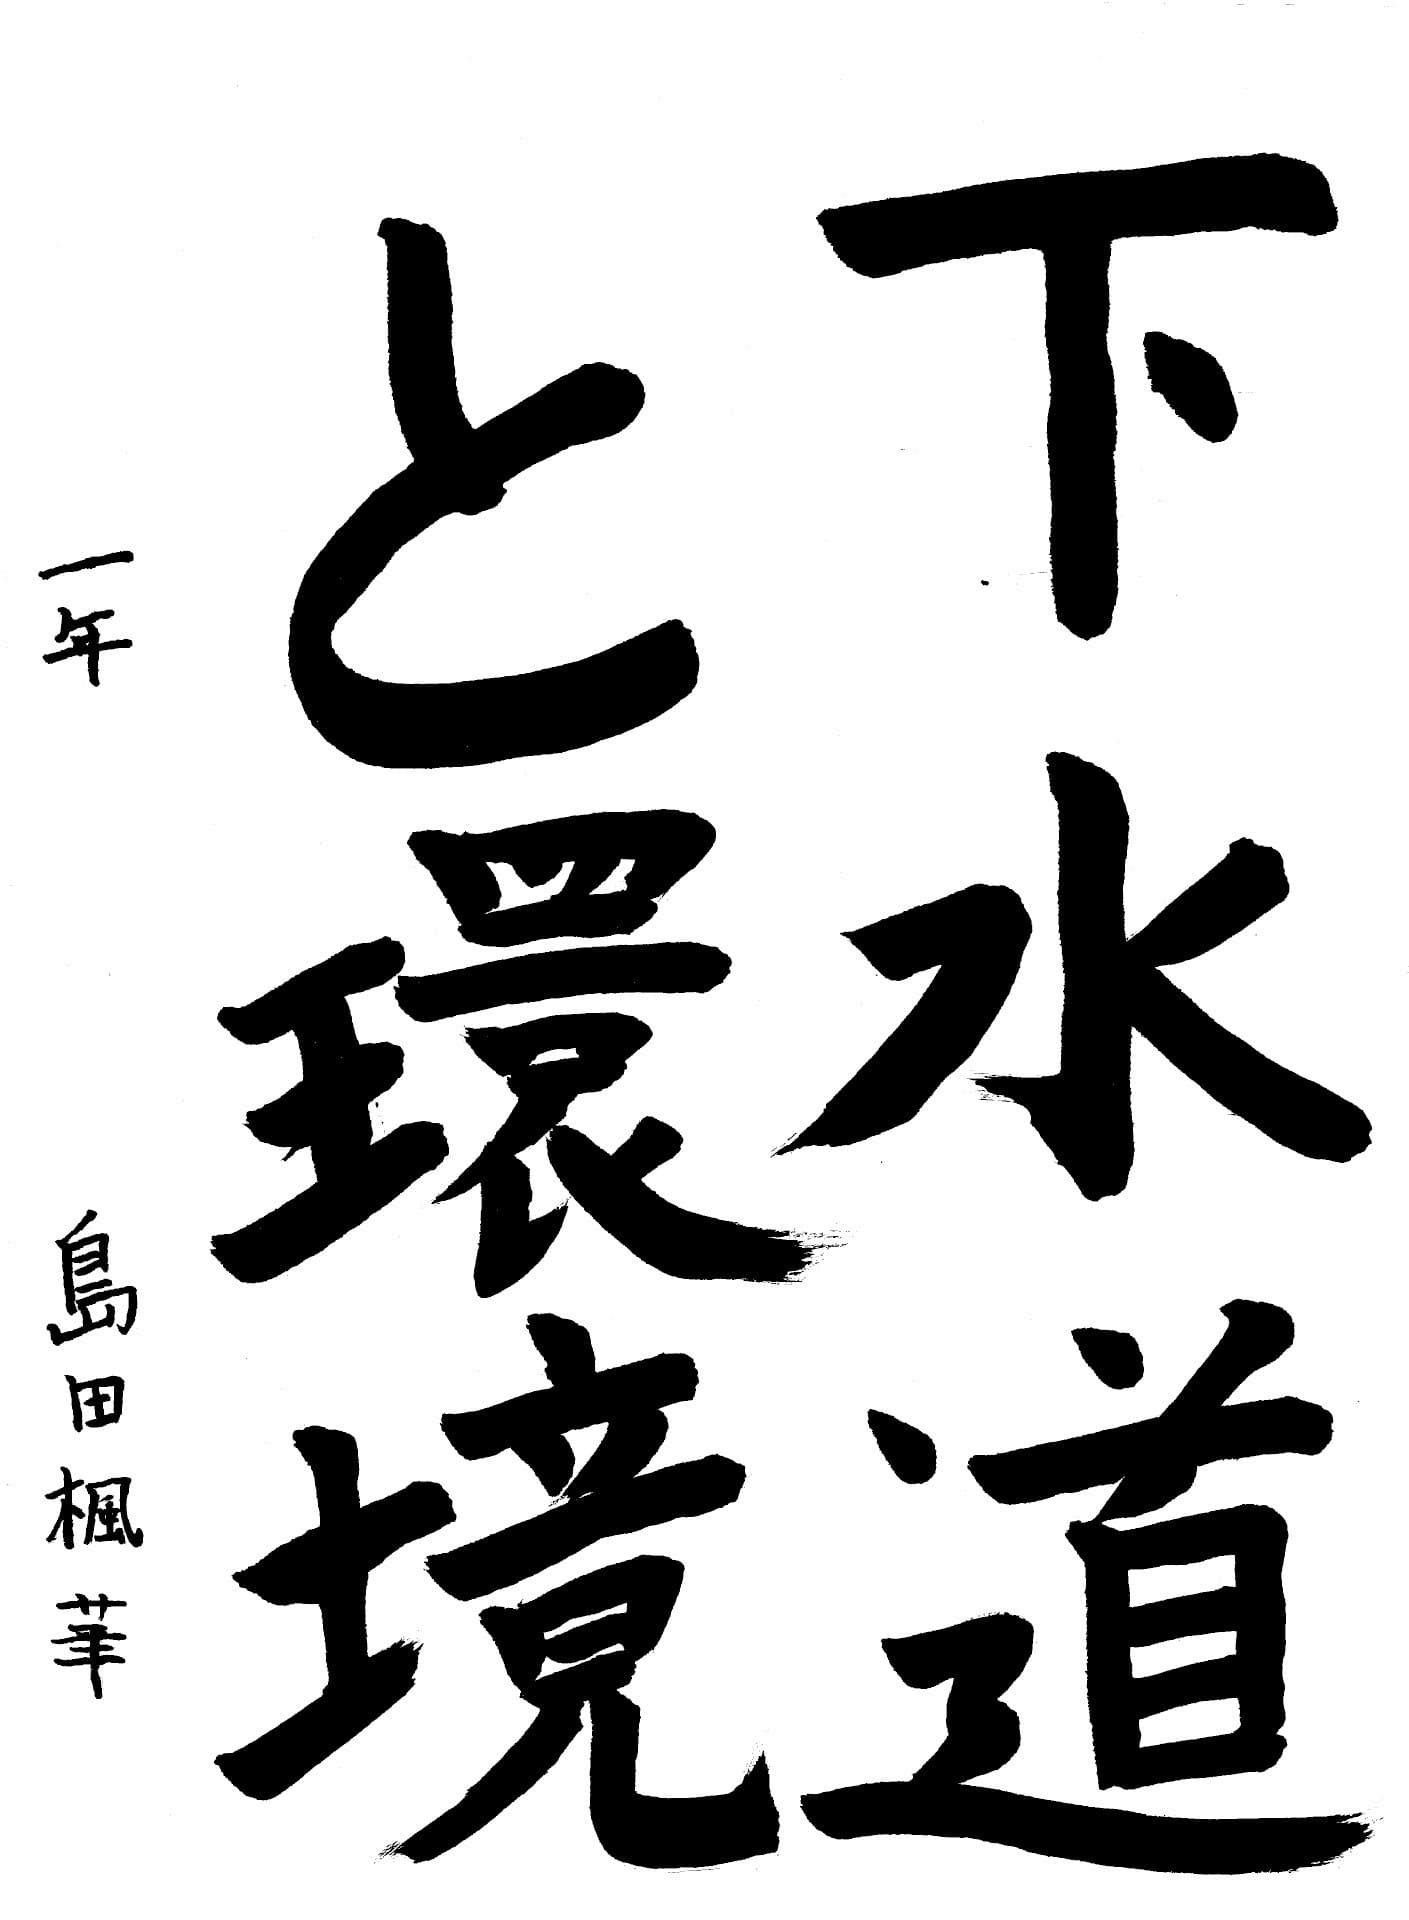 下水道
と環境
一年 島田楓華